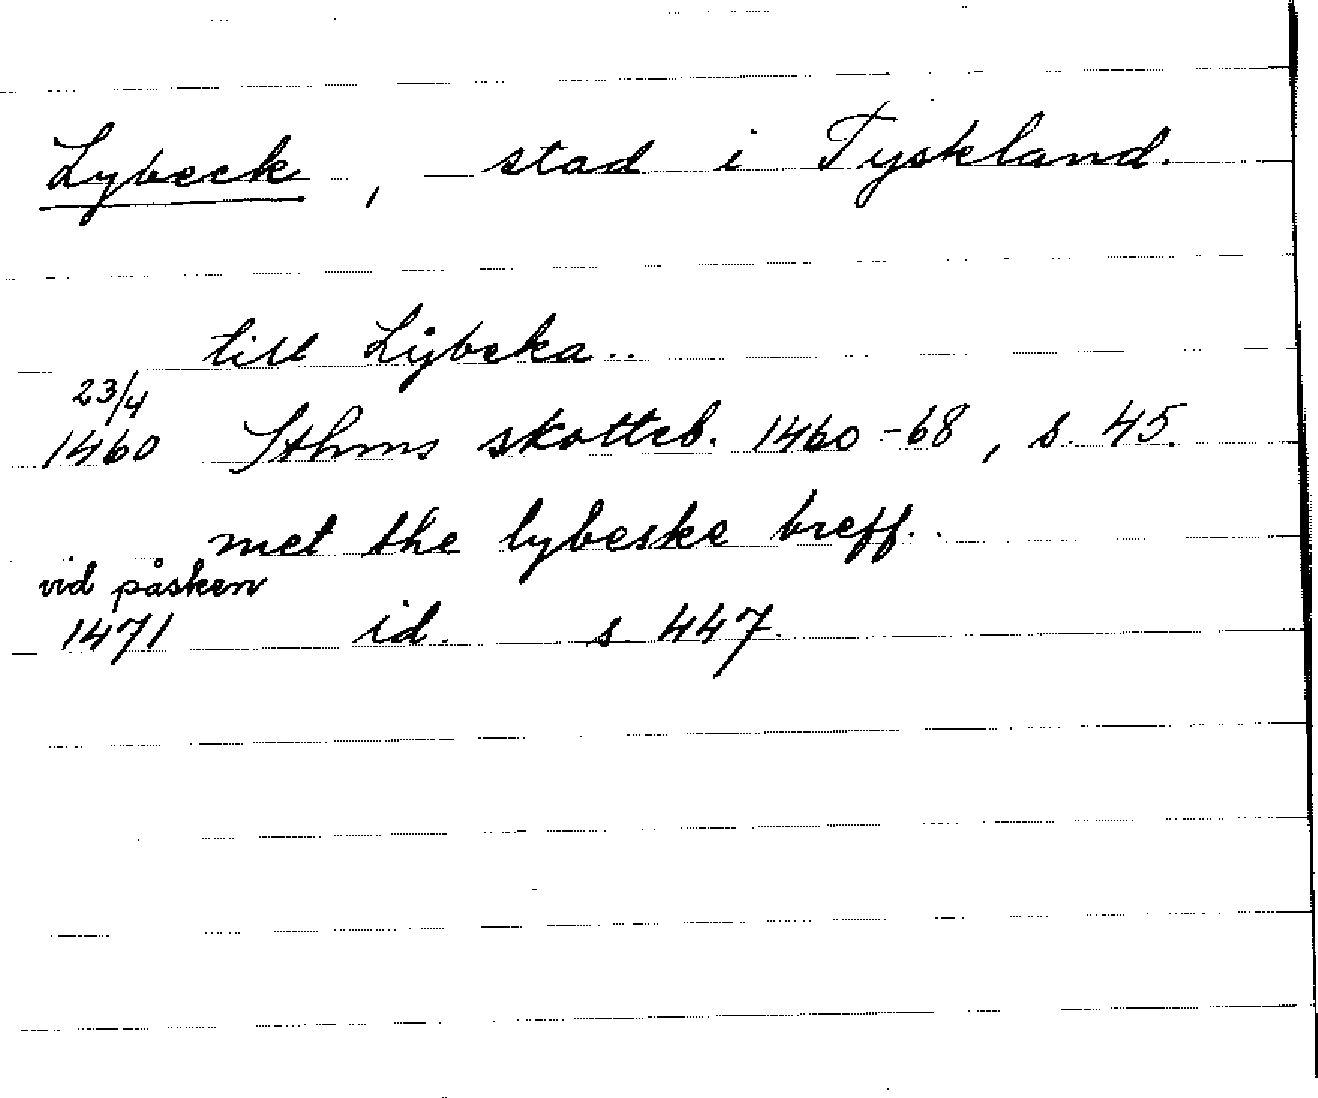 Lybeck, stad i Tyskland.
till Lÿbeka..
23/4
1460 Sthms skotteb. 1460-68, s. 45.
met the lybeske breff..
vid påsken
1471 id. s 447.